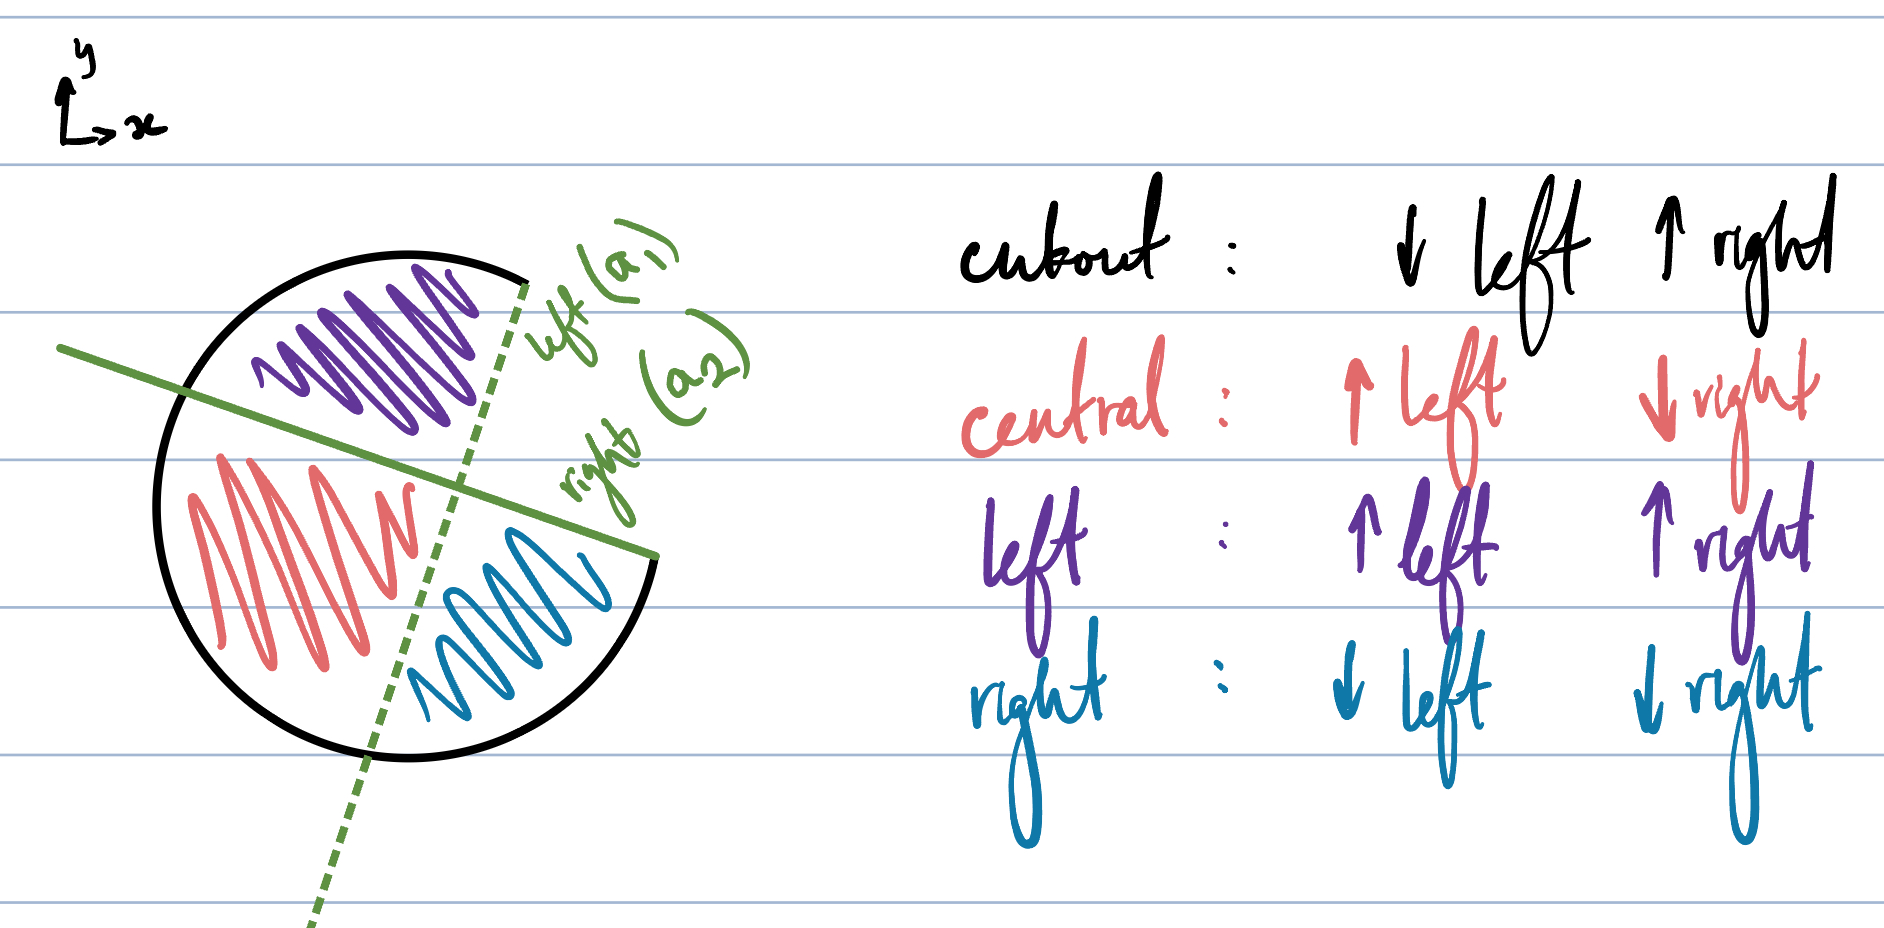 y
x
left (a1)
right (a2)
cutout : ↓ left ↑ right
central : ↑ left ↓ right
left : ↑ left ↑ right
right : ↓ left ↓ right